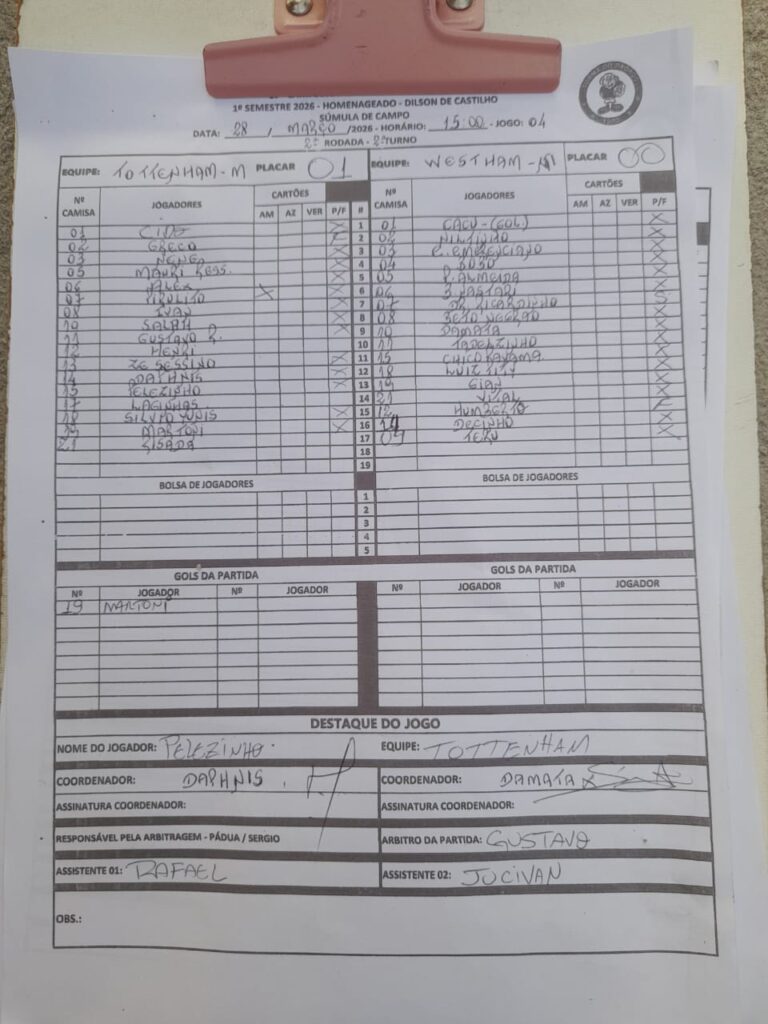 1º SEMESTRE 2026 - HOMENAGEADO - DILSON DE CASTILHO
SÚMULA DE CAMPO
DATA: 28 / MARÇO /2026 - HORÁRIO: 15:00 - JOGO: 04
2ª RODADA - 2º TURNO
EQUIPE: TOTTENHAM-M PLACAR 01 EQUIPE: WESTHAM-M PLACAR 00
Nº CAMISA JOGADORES CARTÕES AM AZ VER P/F # Nº CAMISA JOGADORES CARTÕES AM AZ VER P/F
01 X 1 01 CACU-(GOL) X
02 GRECO 2 02 NILTINHO X
03 NENE X 3 03 R. EMERENCIANO X
05 MAURI X 4 04 BOBO X
06 ALEX X X 5 05 R. ALMEIDA X
07 PIRULITO X 6 06 X
08 IVAN X 7 07 DR. RICARDINHO
10 SALAH X 8 08 BETO NEGRÃO X
11 GUSTAVO 9 10 DAMATA X
12 HENRI 10 11 TADEUZINHO X
13 ZE SESSINO X 11 15 CHICO X
14 DAPHNIS X 12 18 LUIZ X
15 PELEZINHO X 13 19 GIAN X
17 LAGINHAS 14 21 VITAL X
18 SILVIO YUNIS X 15 12 HUMBERTO X
19 MARTONI X 16 14 DECINHO X
21 17 09 X
18
19
BOLSA DE JOGADORES BOLSA DE JOGADORES
1
2
3
4
5
GOLS DA PARTIDA GOLS DA PARTIDA
Nº JOGADOR Nº JOGADOR Nº JOGADOR Nº JOGADOR
19 MARTONI
DESTAQUE DO JOGO
NOME DO JOGADOR: PELEZINHO. EQUIPE: TOTTENHAM
COORDENADOR: DAPHNIS COORDENADOR: DAMATA
ASSINATURA COORDENADOR: ASSINATURA COORDENADOR:
RESPONSÁVEL PELA ARBITRAGEM - PÁDUA / SERGIO ARBITRO DA PARTIDA: GUSTAVO
ASSISTENTE 01: RAFAEL ASSISTENTE 02: JUCIVAN
OBS.: